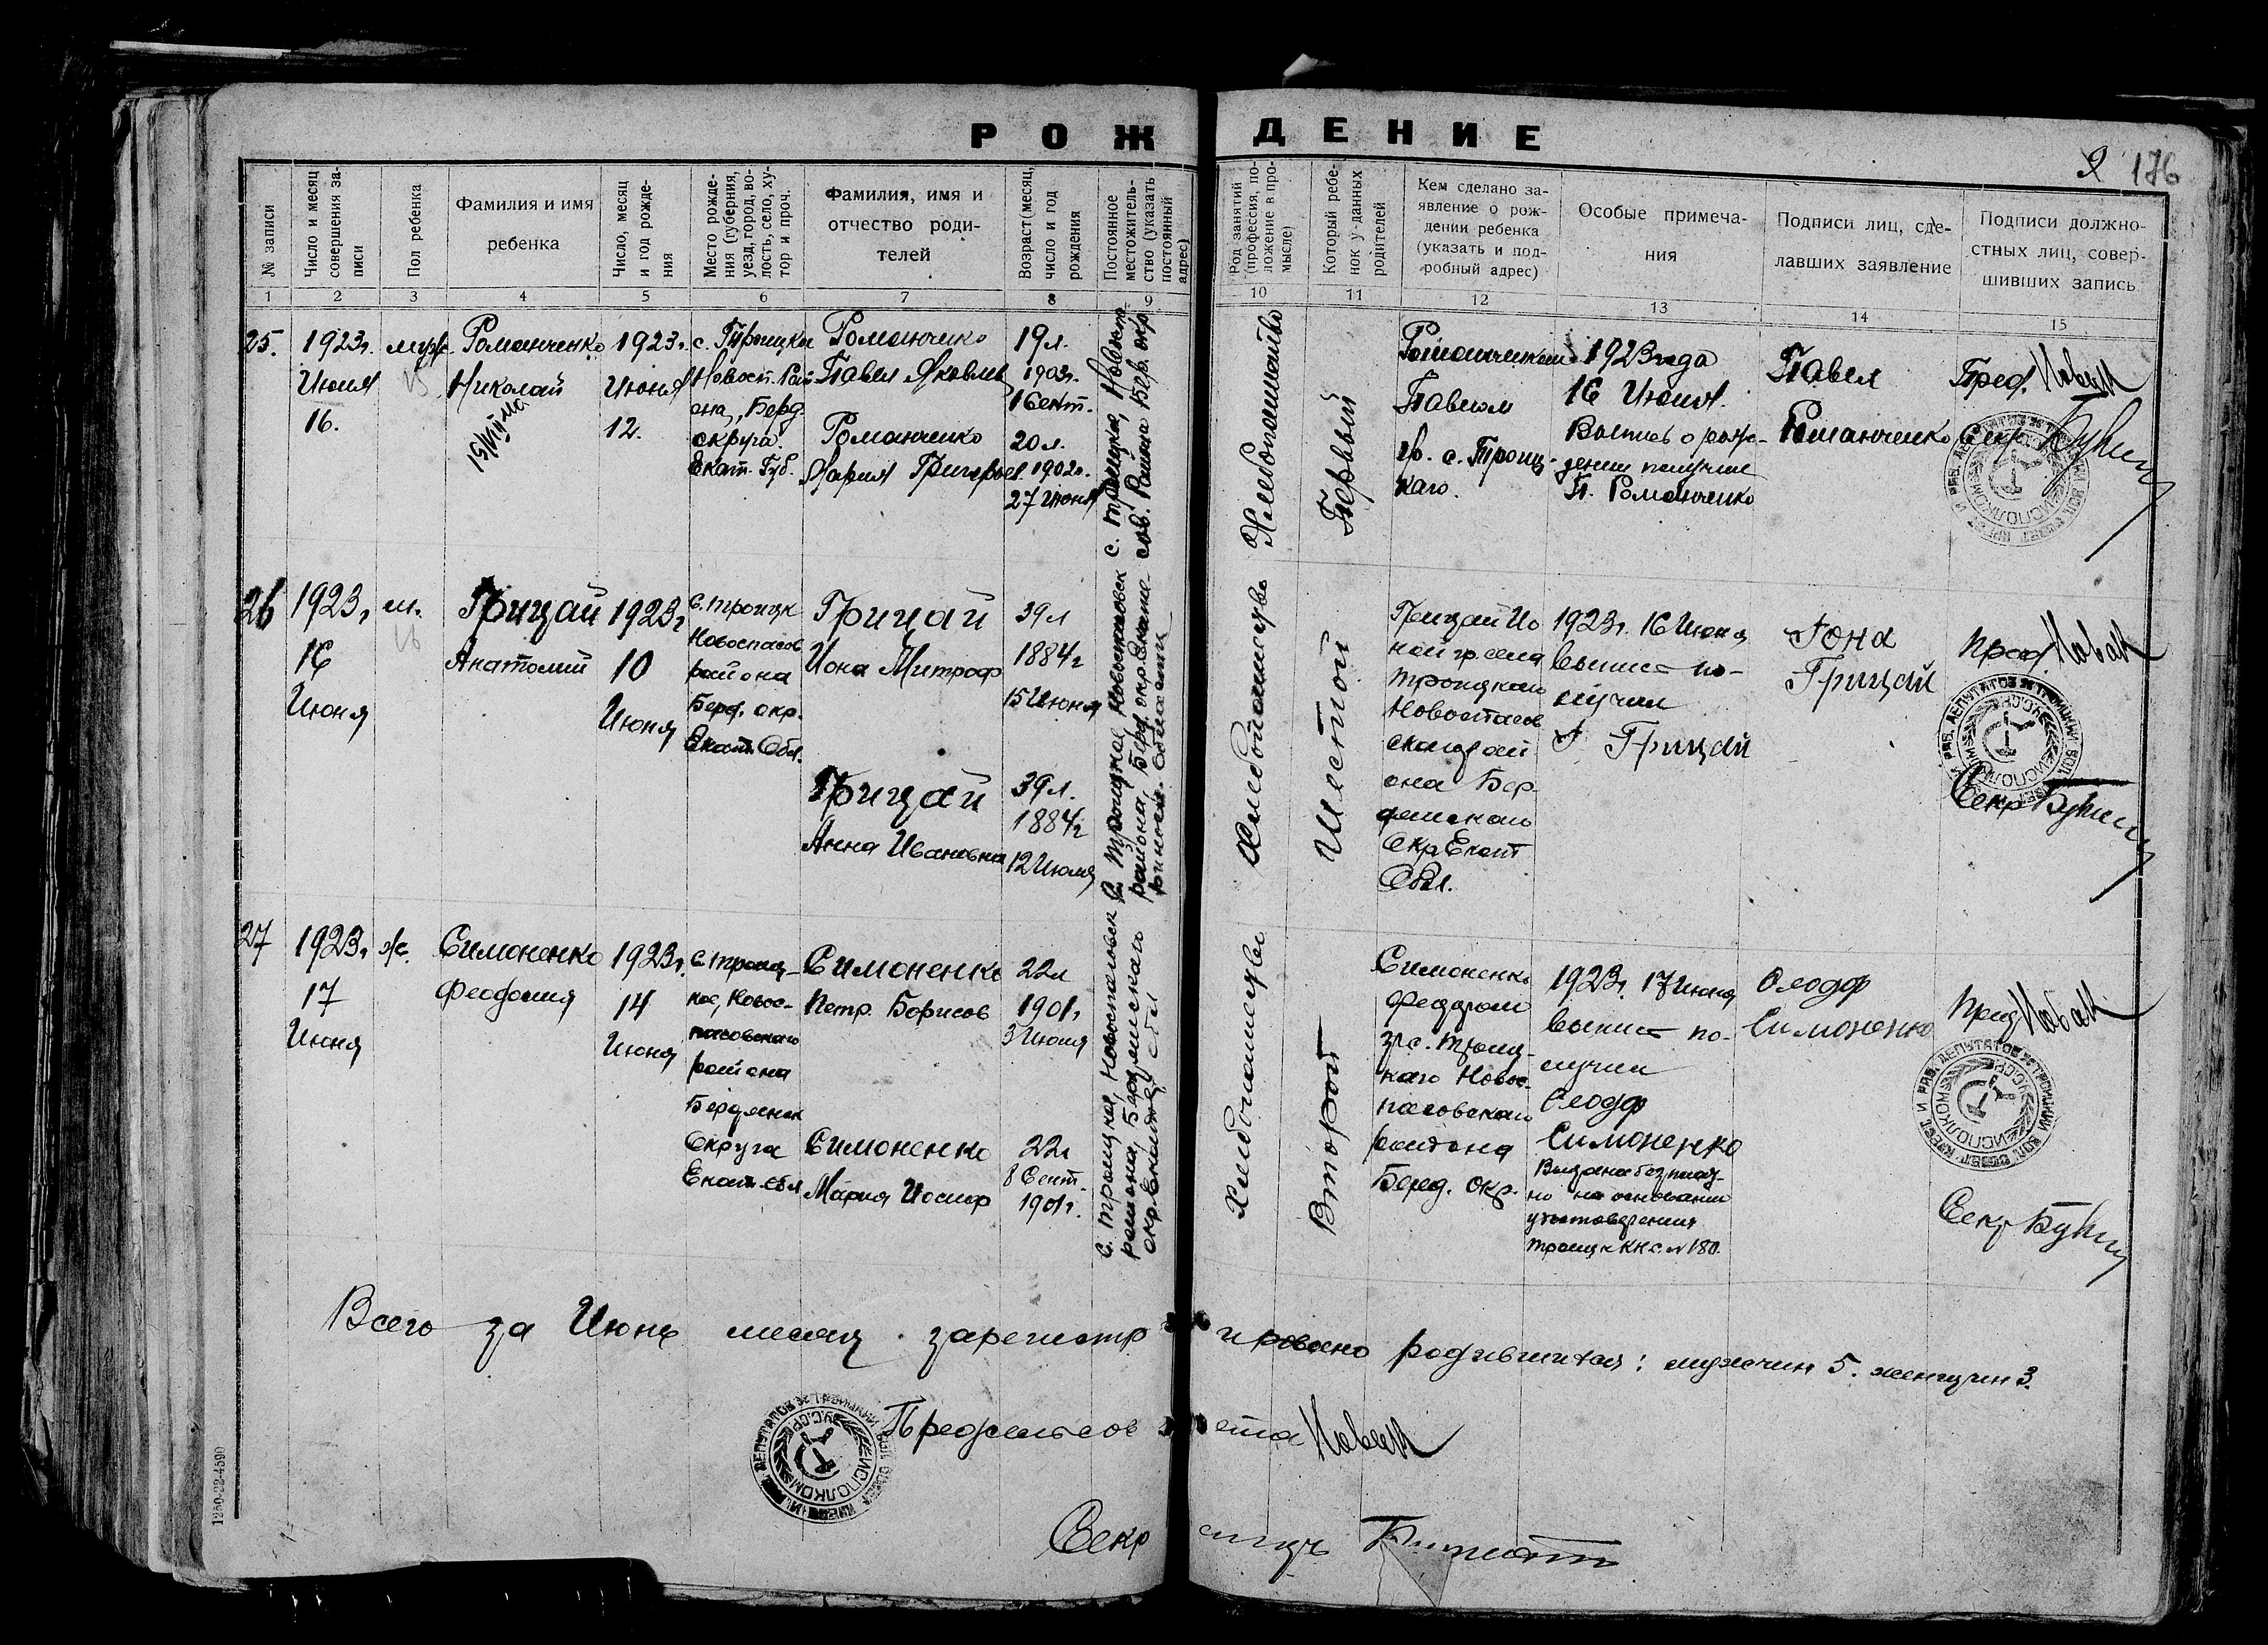 РОЖДЕНИЕ
2 176
№ записи
Число и месяц совершения записи
Пол ребенка
Фамилия и имя ребенка
Число, месяц и год рождения
Место рождения (губерния, уезд, город, волость, село, хутор и проч.
Фамилия, имя и отчество родителей
Возраст (месяц, число и год рождения
Постоянное местожительство (указать постоянный адрес)
Род занятий (профессия, положение в промысле)
Который ребенок у данных родителей
Кем сделано заявление о рождении ребенка (указать и подробный адрес)
Особые примечания
Подписи лиц, сделавших заявление
Подписи должностных лиц, совершивших запись
1 2 3 4 5 6 7 8 9 10 11 12 13 14 15
25.
1923г.
Июня
16.
муж.
Романченко
Николай
1923г.
Июня
12.
с. Троицкое
Новосп. Рай
она, Берд.
округа.
Екат. Губ.
Романченко
Павел Яковлев
Романченко
Мария Григорьев
19 л.
1903г.
1 Сент.
20 л.
1902г.
27 Июня
Хлебопашество
Первый
Романченком
Павлом
гр. с. Троиц-
каго.
1923 года
16 Июня.
Выпись о рож-
дении получил
П. Романченко
Павел
Романченко
Пред. Новак
Секр.
26
1923г
16
Июня
м.
Грицай
Анатолий
1923г
10
Июня
с. Троицк
Новоспасов
района
Берд. окр.
Екат. Обл.
Грицай
Иона Митроф
Грицай
Анна Ивановна
39 л
1884г
15 Июня
39 л.
1884г
12 Июля
Хлебопашество
Шестой
Грицай Ио
ной гр. села
Троицкаго
Новоспасов
скаго рай
она Бер
дянскаго
Окр Екат
Обл.
1923г. 16 Июня
выпись по-
лучил
Грицай
Грицай
Пред. Новак
Секр
27
1923г.
17
Июня
ж.
Симоненко
Феодосия
1923г.
14
Июня
с. Троиц-
кое, Новос-
пасовскаго
района
Бердянск
Округа
Екат. обл
Симоненко
Петр. Борисов
Симоненко
Мария Иосиф
22 л
1901г
3 Июля
22 л
8 Сент.
1901г.
Хлебопашество
Второй
Симоненко
гр с. Троиц-
каго Новос-
пасовскаго
района
Берд. окр.
1923г. 17 Июня
выпись по-
лучил
Симоненко
Выдана безплат-
но на основании
удостоверения
Троицк КНС № 180.
Симоненко
Пред Новак
Секр
Всего за Июнь месяц зарегистрировано родившихся: мужчин 5. женщин 3.
Предсельсовета Новак
1250-22-4590